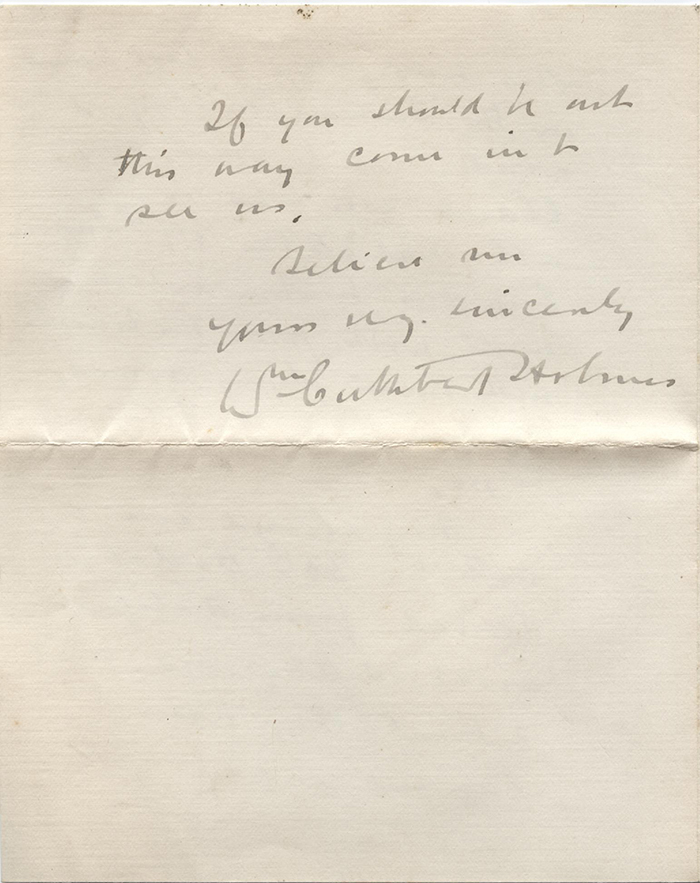 If you should be out
this way come in to
see us.
Believe me
yours very sincerely
Wm Cuthbert Holmes